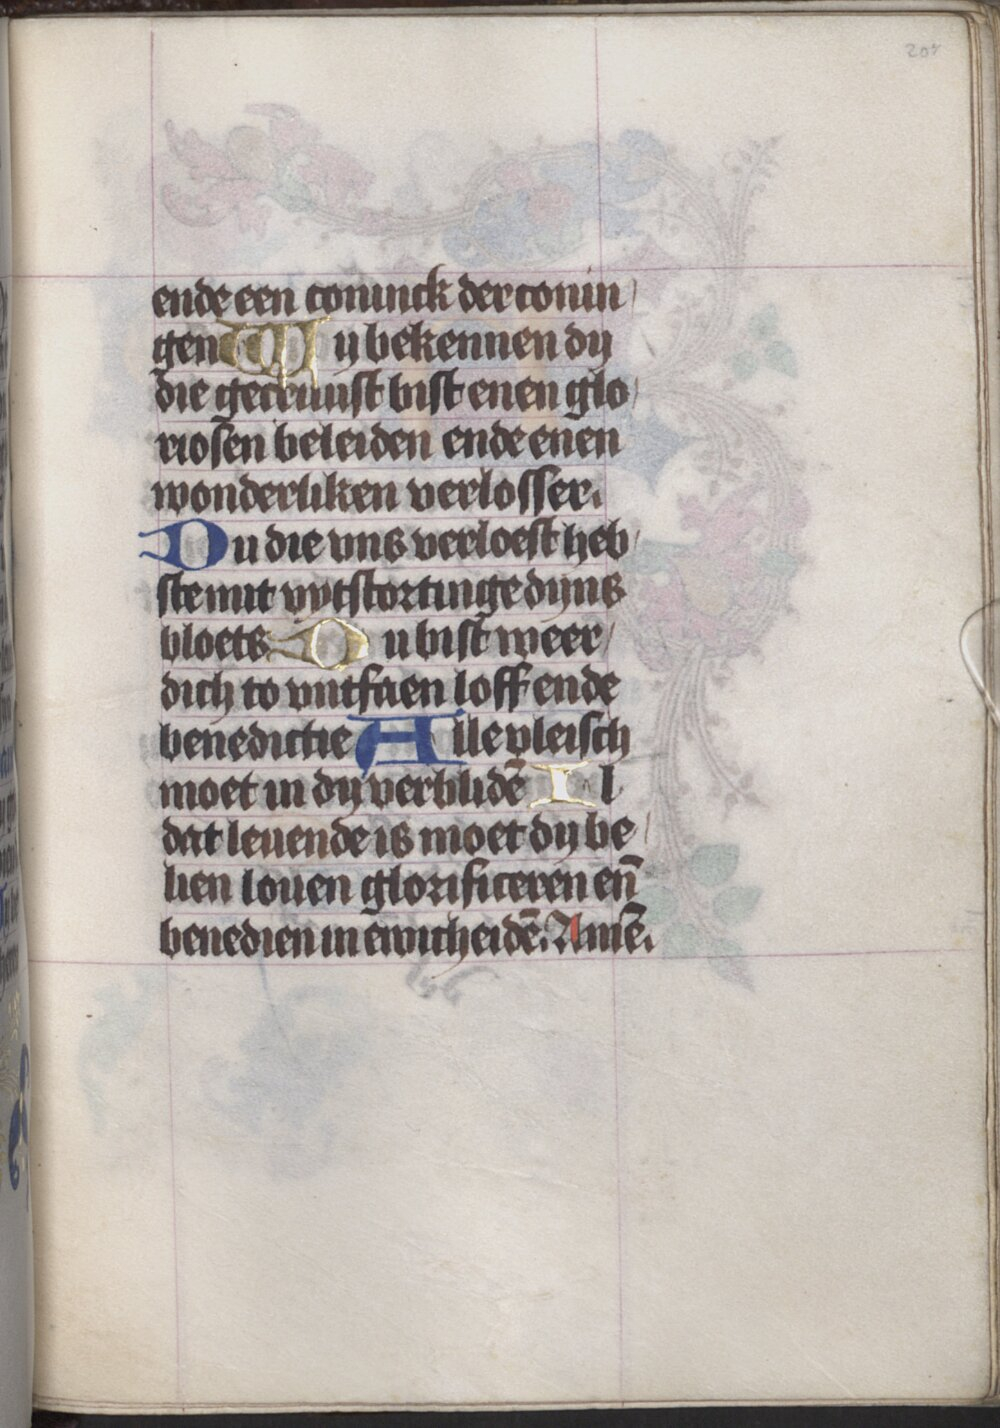 207
ende een coninck der conin
gen Wy bekennen dy
die gecruust bist enen glo
riosen beleiden ende enen
wonderliken verlosser.
Du die vns verloest heb
ste mit vytstortinge dyns
bloets Du bist weer
dich to vntfaen loff ende
benedictie Alle vleisch
moet in dy verblidē Il
dat leuende is moet dy be
lien louen glorificeren en̄
benedien in ewicheidē. Amē.